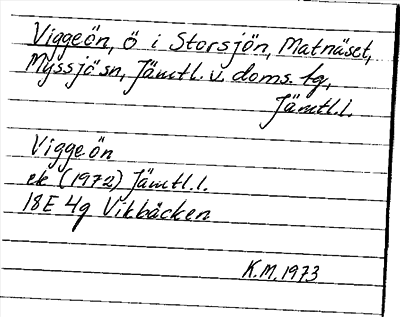 Viggeön, ö i Storsjön, Matnäset,
Myssjö sn, Jämtl. v. doms. tg,
Jämtl.l.
Viggeön
ek (1972) Jämtl.l.
18E 4g Vikbäcken
K.M. 1973